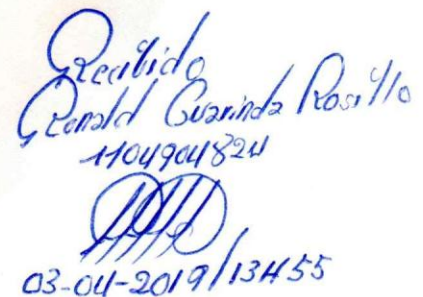 Recibido
Ronald Guarinda Rosillo
1104904824
03-04-2019/13H55